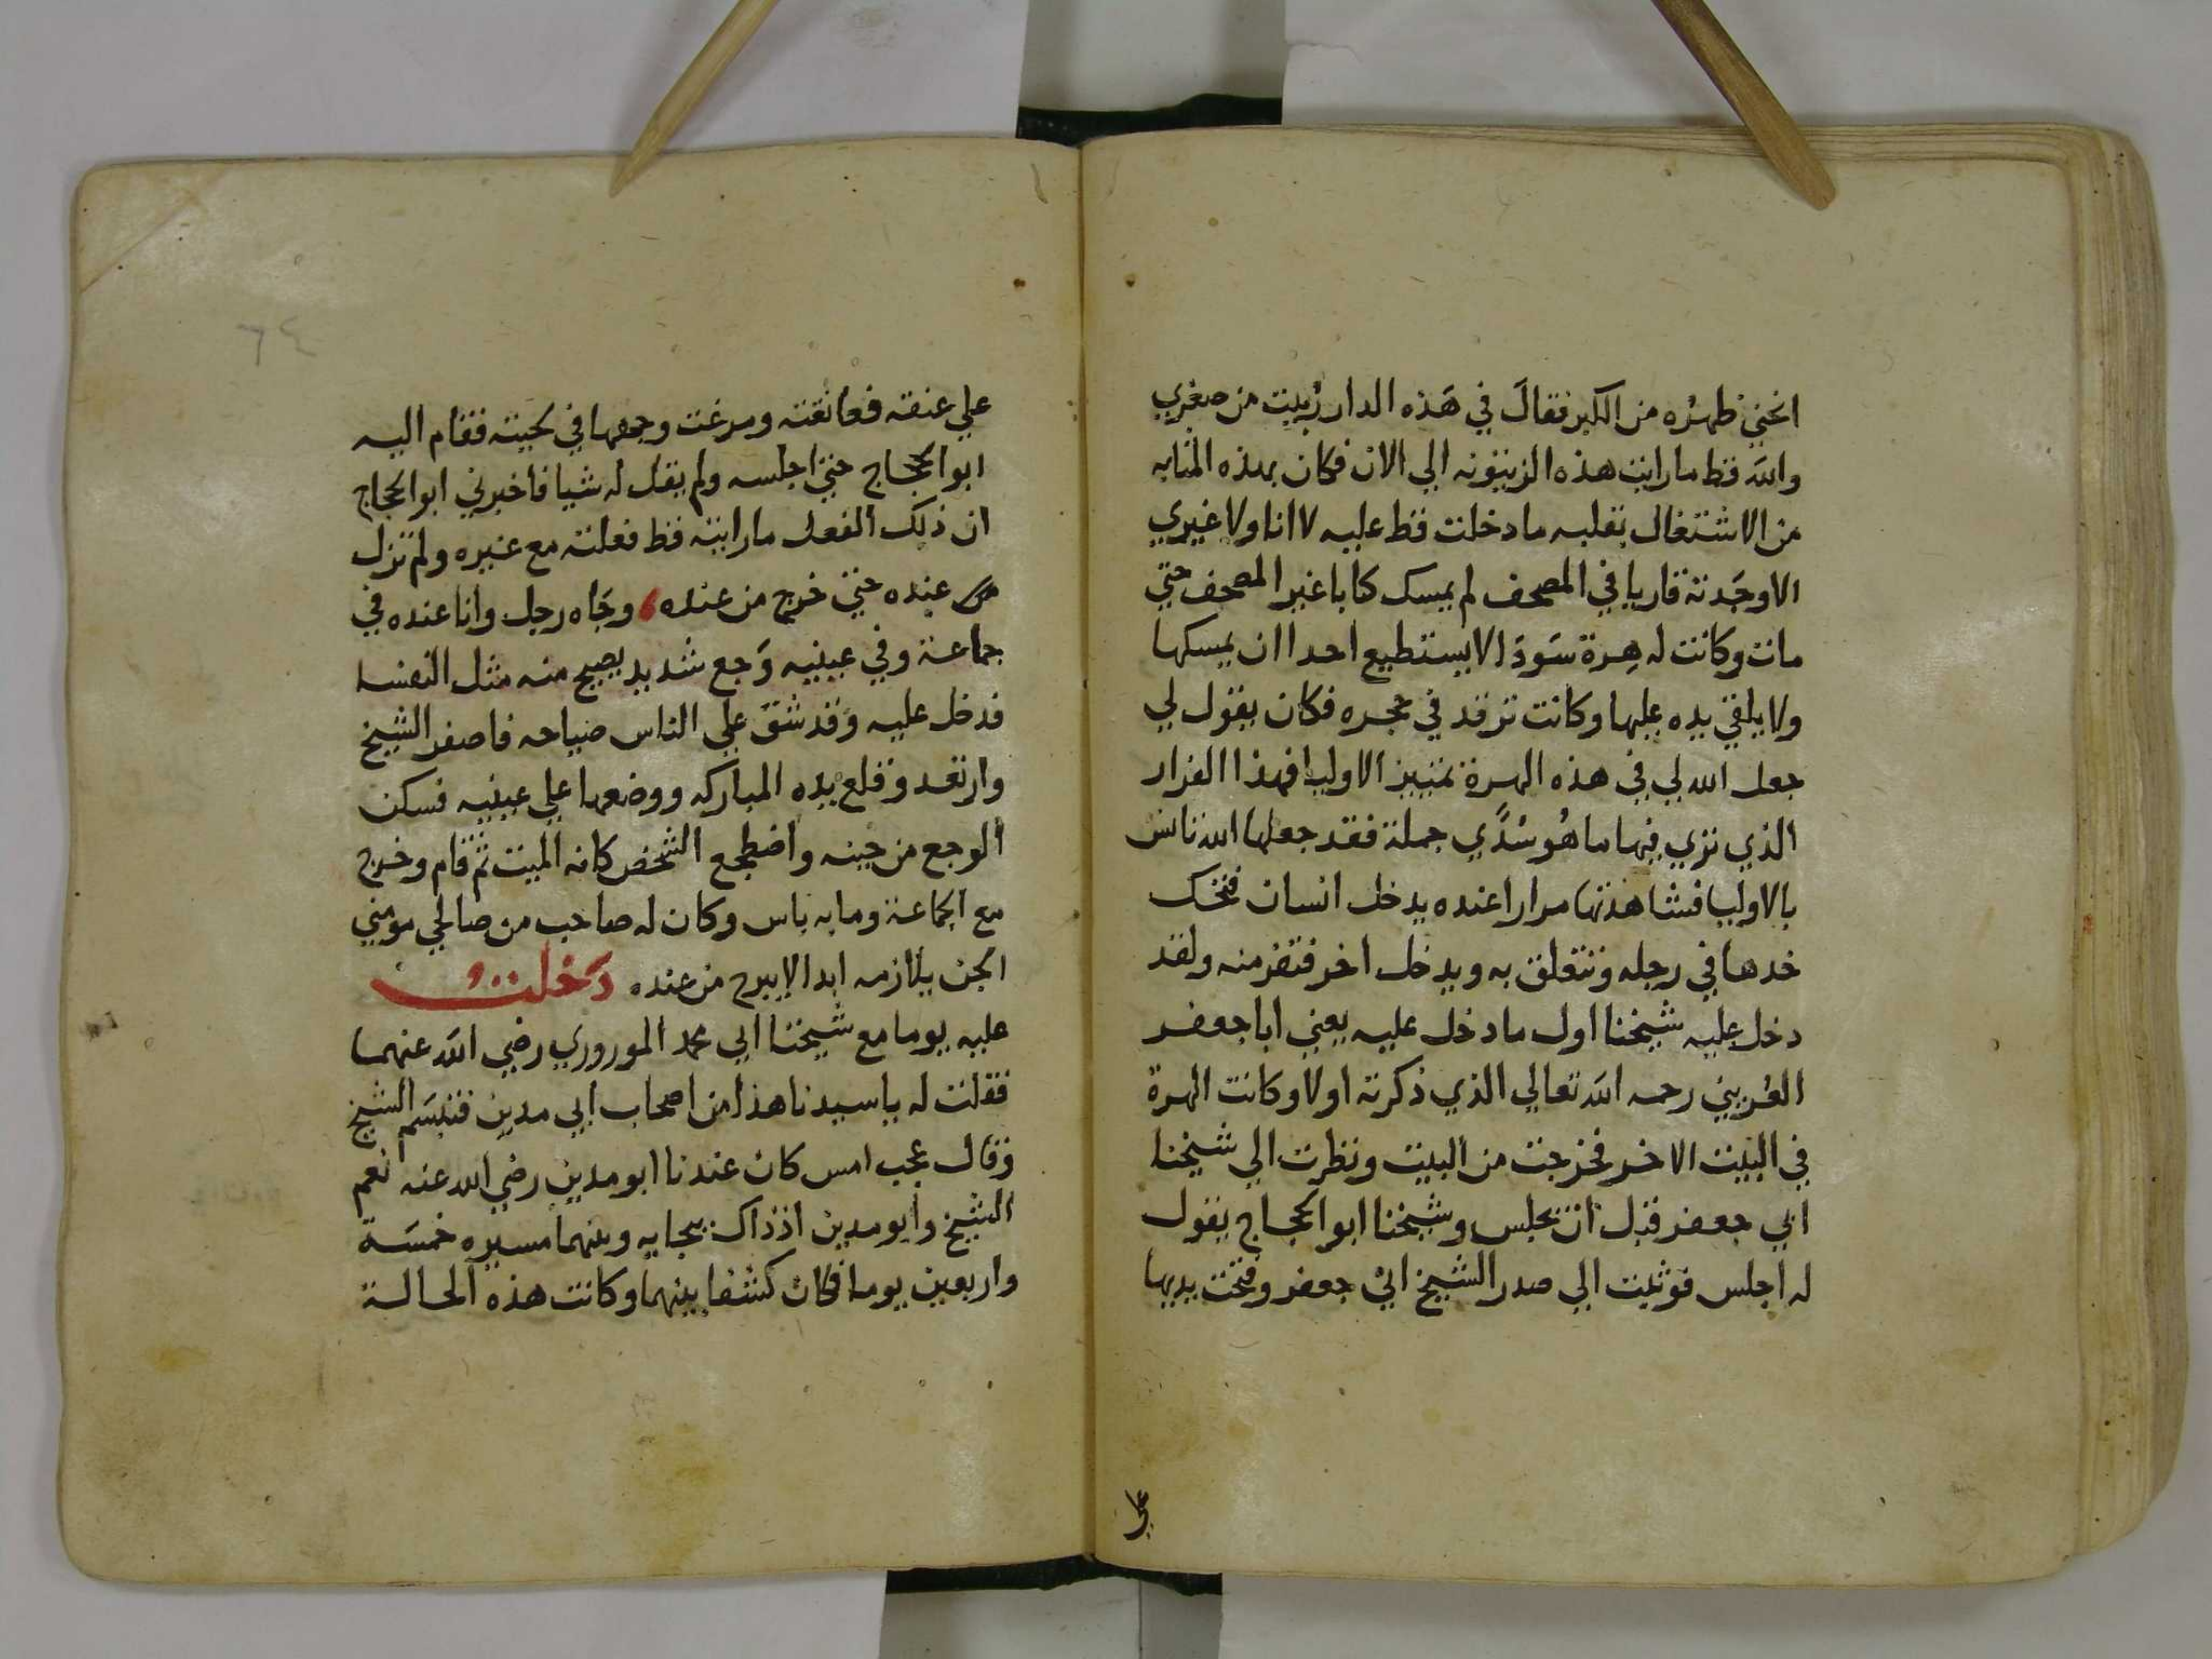 انحني ظهره من الكبر فقال في هَذه الدار رُبيت من صغري
والله قط ما رايت هذه الزيتونه الي الان فكان بهذه المثابه
من الاشتغال بقلبه ما دخلت قط عليه لا انا ولا غيري
الا وجَدته قاريا في المصحف لم يمسك كتابا غير المصحف حتي
مات وكانت له هِرة سَودَا لا يستطيع احدا ان يمسكها
ولا يلقي يده عليها وكانت ترقد في حجره فكان يقول لي
جعل الله لي في هذه الهرة تمييز الاوليا فهذا الفرار
الذي تري فيها ما هُو سُدًي جملة فقد جعلها الله تانس
بالاوليا فشاهدتها مرارا عنده يدخل انسان فتحك
خدها في رجله وتتعلق به ويدخل اخر فتفر منه ولقد
دخل عليه شيخنا اول ما دخل عليه يعني ابا جعفر
العُريني رحمه الله تعالي الذي ذكرته اولا وكانت الهرة
في البيت الاخر فخرجت من البيت ونظرت الي شيخنا
ابي جعفر قبل ان يجلس وشيخنا ابو الحجاج يقول
له اجلس فوثبت الي صدر الشيخ ابي جعفر وفتحت يديها
علي
٦٤
علي عنقه فعانقته ومرغت وجهها في لحيته فقام اليه
ابو الحجاج حتي اجلسه ولم يقل له شيا فاخبرني ابو الحجاج
ان ذلك الفعل ما رايته قط فعلته مع غيره ولم تزل
من عنده حتي خرج من عنده، وجَاه رجل وانا عنده في
جماعة وفي عينيه وَجع شديد يصيح منه مثل النفسا
فدخل عليه وَقد شق علي الناس صياحه فاصفر الشيخ
وارتعد وقلع يده المباركه ووضعها علي عينيه فسكن
الوجع من حينه واضطجع الشخص كانه الميت ثم قام وخرج
مع الجماعة وما به باس وكان له صاحب من صالحي مومني
الجن يلازمه ابدا لا يبرح من عنده دَخلت
عليه يوما مع شيخنا ابي محمد الموروري رضي الله عنهما
فقلت له يا سيدنا هذا من اصحاب ابي مدين فتبسَم الشيخ
وقال عجب امس كان عندنا ابو مدين رضي الله عنه نعم
الشيخ وابو مدين اذ ذاك ببجايه وبينهما مسيره خمسَة
واربعين يوما فكان كشفا بينهما وكانت هذه الحالة